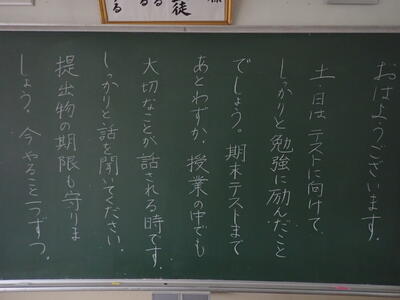 おはようございます。
土・日は テストに向けて
しっかりと勉強に励んだこと
でしょう。期末テストまで
あとわずか。授業の中でも
大切なことが話される時です。
しっかりと話を聞いてください。
提出物の期限も守りま
しょう。今やること一つずつ。
徒
る